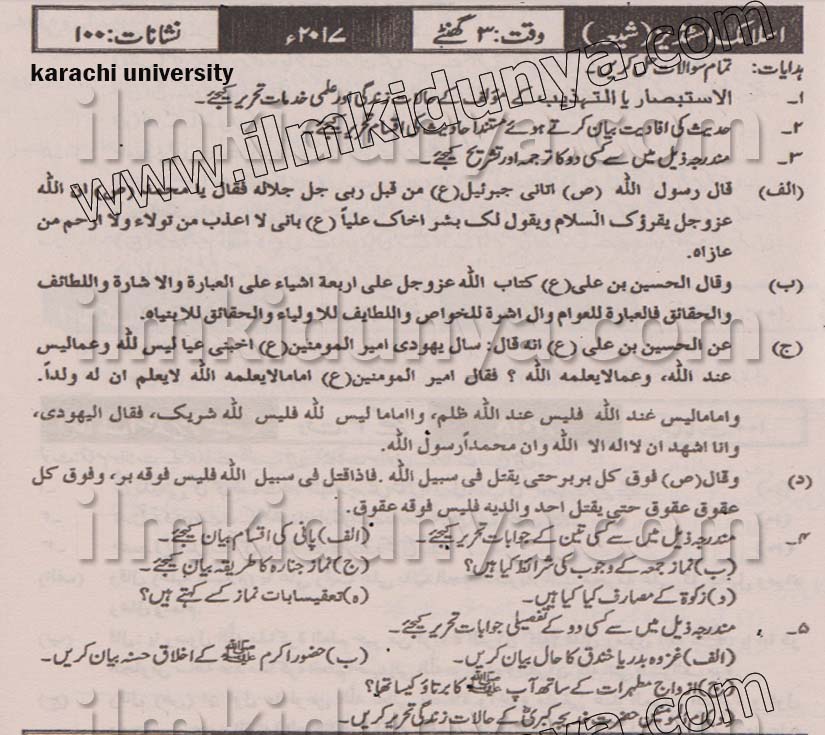 وقت: ۳ گھنٹے ۲۰۱۷ء نشانات: ۱۰۰
karachi university
ہدایات: تمام سوالات
۱۔ الاستبصار یا التہذیب کے مؤلف کے حالات زندگی اور علمی خدمات تحریر کیجئے۔
۲۔ حدیث کی افادیت بیان کرتے ہوئے مستند احادیث کی اقسام تحریر کیجئے۔
۳۔ مندرجہ ذیل میں سے کسی دو کا ترجمہ اور تشریح کیجئے۔
(الف) قال رسول اللہ (ص) اتانی جبرئیل(ع) من قبل ربی جل جلالہ فقال یا محمد (ص) ان اللہ
عزوجل یقرؤک السلام ویقول لک بشر اخاک علیاً (ع) بانی لا اعذب من تولاء ولا ارحم من
عازاہ۔
(ب) وقال الحسین بن علی(ع) کتاب اللہ عزوجل علی اربعة اشیاء علی العبارة والا شارة واللطائف
والحقائق فالعبارة للعوام وال اشرة للخواص واللطایف للا ولیاء والحقائق للا بنیاہ۔
(ج) عن الحسین بن علی (ع) انہ قال: سال یہودی امیر المومنین(ع) اخبنی عیا لیس للہ وعمالیس
عند اللہ، وعمالا یعلمہ اللہ ؟ فقال امیر المومنین(ع) امامالا یعلمہ اللہ لایعلم ان لہ ولداً۔
وامامالیس عند اللہ فلیس عند اللہ ظلم، وااماما لیس للہ فلیس للہ شریک، فقال الیہودی،
وانا اشہد ان لاالہ الا اللہ وان محمداً رسول اللہ۔
(د) وقال(ص) فوق کل بربر حتی یقتل فی سبیل اللہ ۔ فاذاقتل فی سبیل اللہ فلیس فوقہ بر، وفوق کل
عقوق عقوق حتی یقتل احد والدیہ فلیس فوقہ عقوق۔
۴۔ مندرجہ ذیل میں سے کسی تین کے جوابات تحریر کیجئے۔ (الف) پانی کی اقسام بیان کیجئے۔
(ب) نماز جمعہ کے وجوب کی شرائط کیا ہیں؟ (ج) نماز جنازہ کا طریقہ بیان کیجئے۔
(د) زکوٰۃ کے مصارف کیا کیا ہیں۔ (ہ) تعقیبات نماز کسے کہتے ہیں؟
۵۔ مندرجہ ذیل میں سے کسی دو کے تفصیلی جوابات تحریر کیجئے۔
(الف) غزوہ بدر یا خندق کا حال بیان کریں۔ (ب) حضور اکرم ﷺ کے اخلاق حسنہ بیان کریں۔
(ج) ازواج مطہرات کے ساتھ آپ ﷺ کا برتاؤ کیسا تھا؟
حضرت خدیجہ کبریٰ کے حالات زندگی تحریر کریں۔
www.ilmkidunya.com
ilmkidunya.com
ilmkidunya.com
ilmkidunya.com
ilmkidunya.com